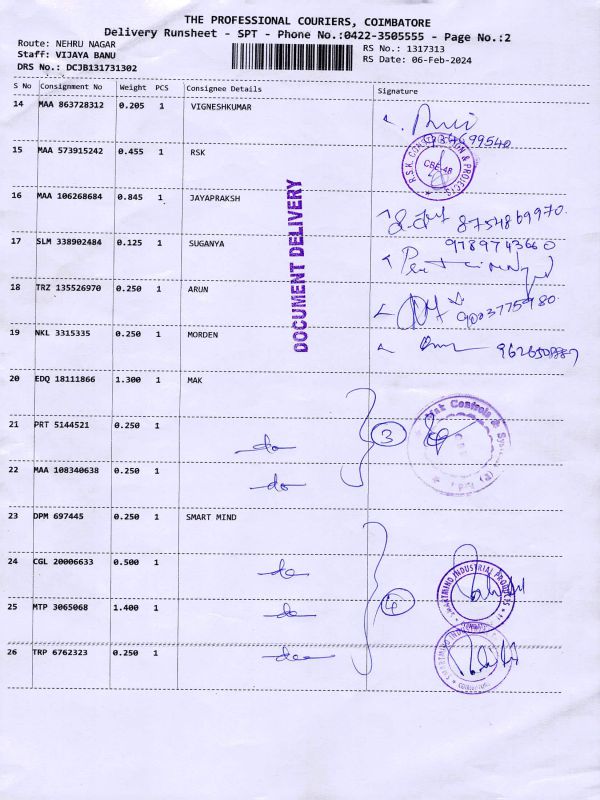 THE PROFESSIONAL COURIERS, COIMBATORE
Delivery Runsheet - SPT - Phone No.:0422-3505555 - Page No.:2
Route: NEHRU NAGAR RS No.: 1317313
Staff: VIJAYA BANU RS Date: 06-Feb-2024
DRS No.: DCJB131731302
S No Consignment No Weight PCS Consignee Details Signature
14 MAA 863728312 0.205 1 VIGNESHKUMAR
15 MAA 573915242 0.455 1 RSK
R.S.K. CONSTRUCTION & PROJECTS
CBE-48
16 MAA 106268684 0.845 1 JAYAPRAKSH
8754869970.
17 SLM 338902484 0.125 1 SUGANYA
9789743660
DOCUMENT DELIVERY
18 TRZ 135526970 0.250 1 ARUN
9003775980
19 NKL 3315335 0.250 1 MORDEN
20 EDQ 18111866 1.300 1 MAK
21 PRT 5144521 0.250 1 do 3
22 MAA 108340638 0.250 1 do
23 DPM 697445 0.250 1 SMART MIND
24 CGL 20006633 0.500 1 do 4
SMARTMIND INDUSTRIAL PRODUCTS
25 MTP 3065068 1.400 1 do
26 TRP 6762323 0.250 1 do